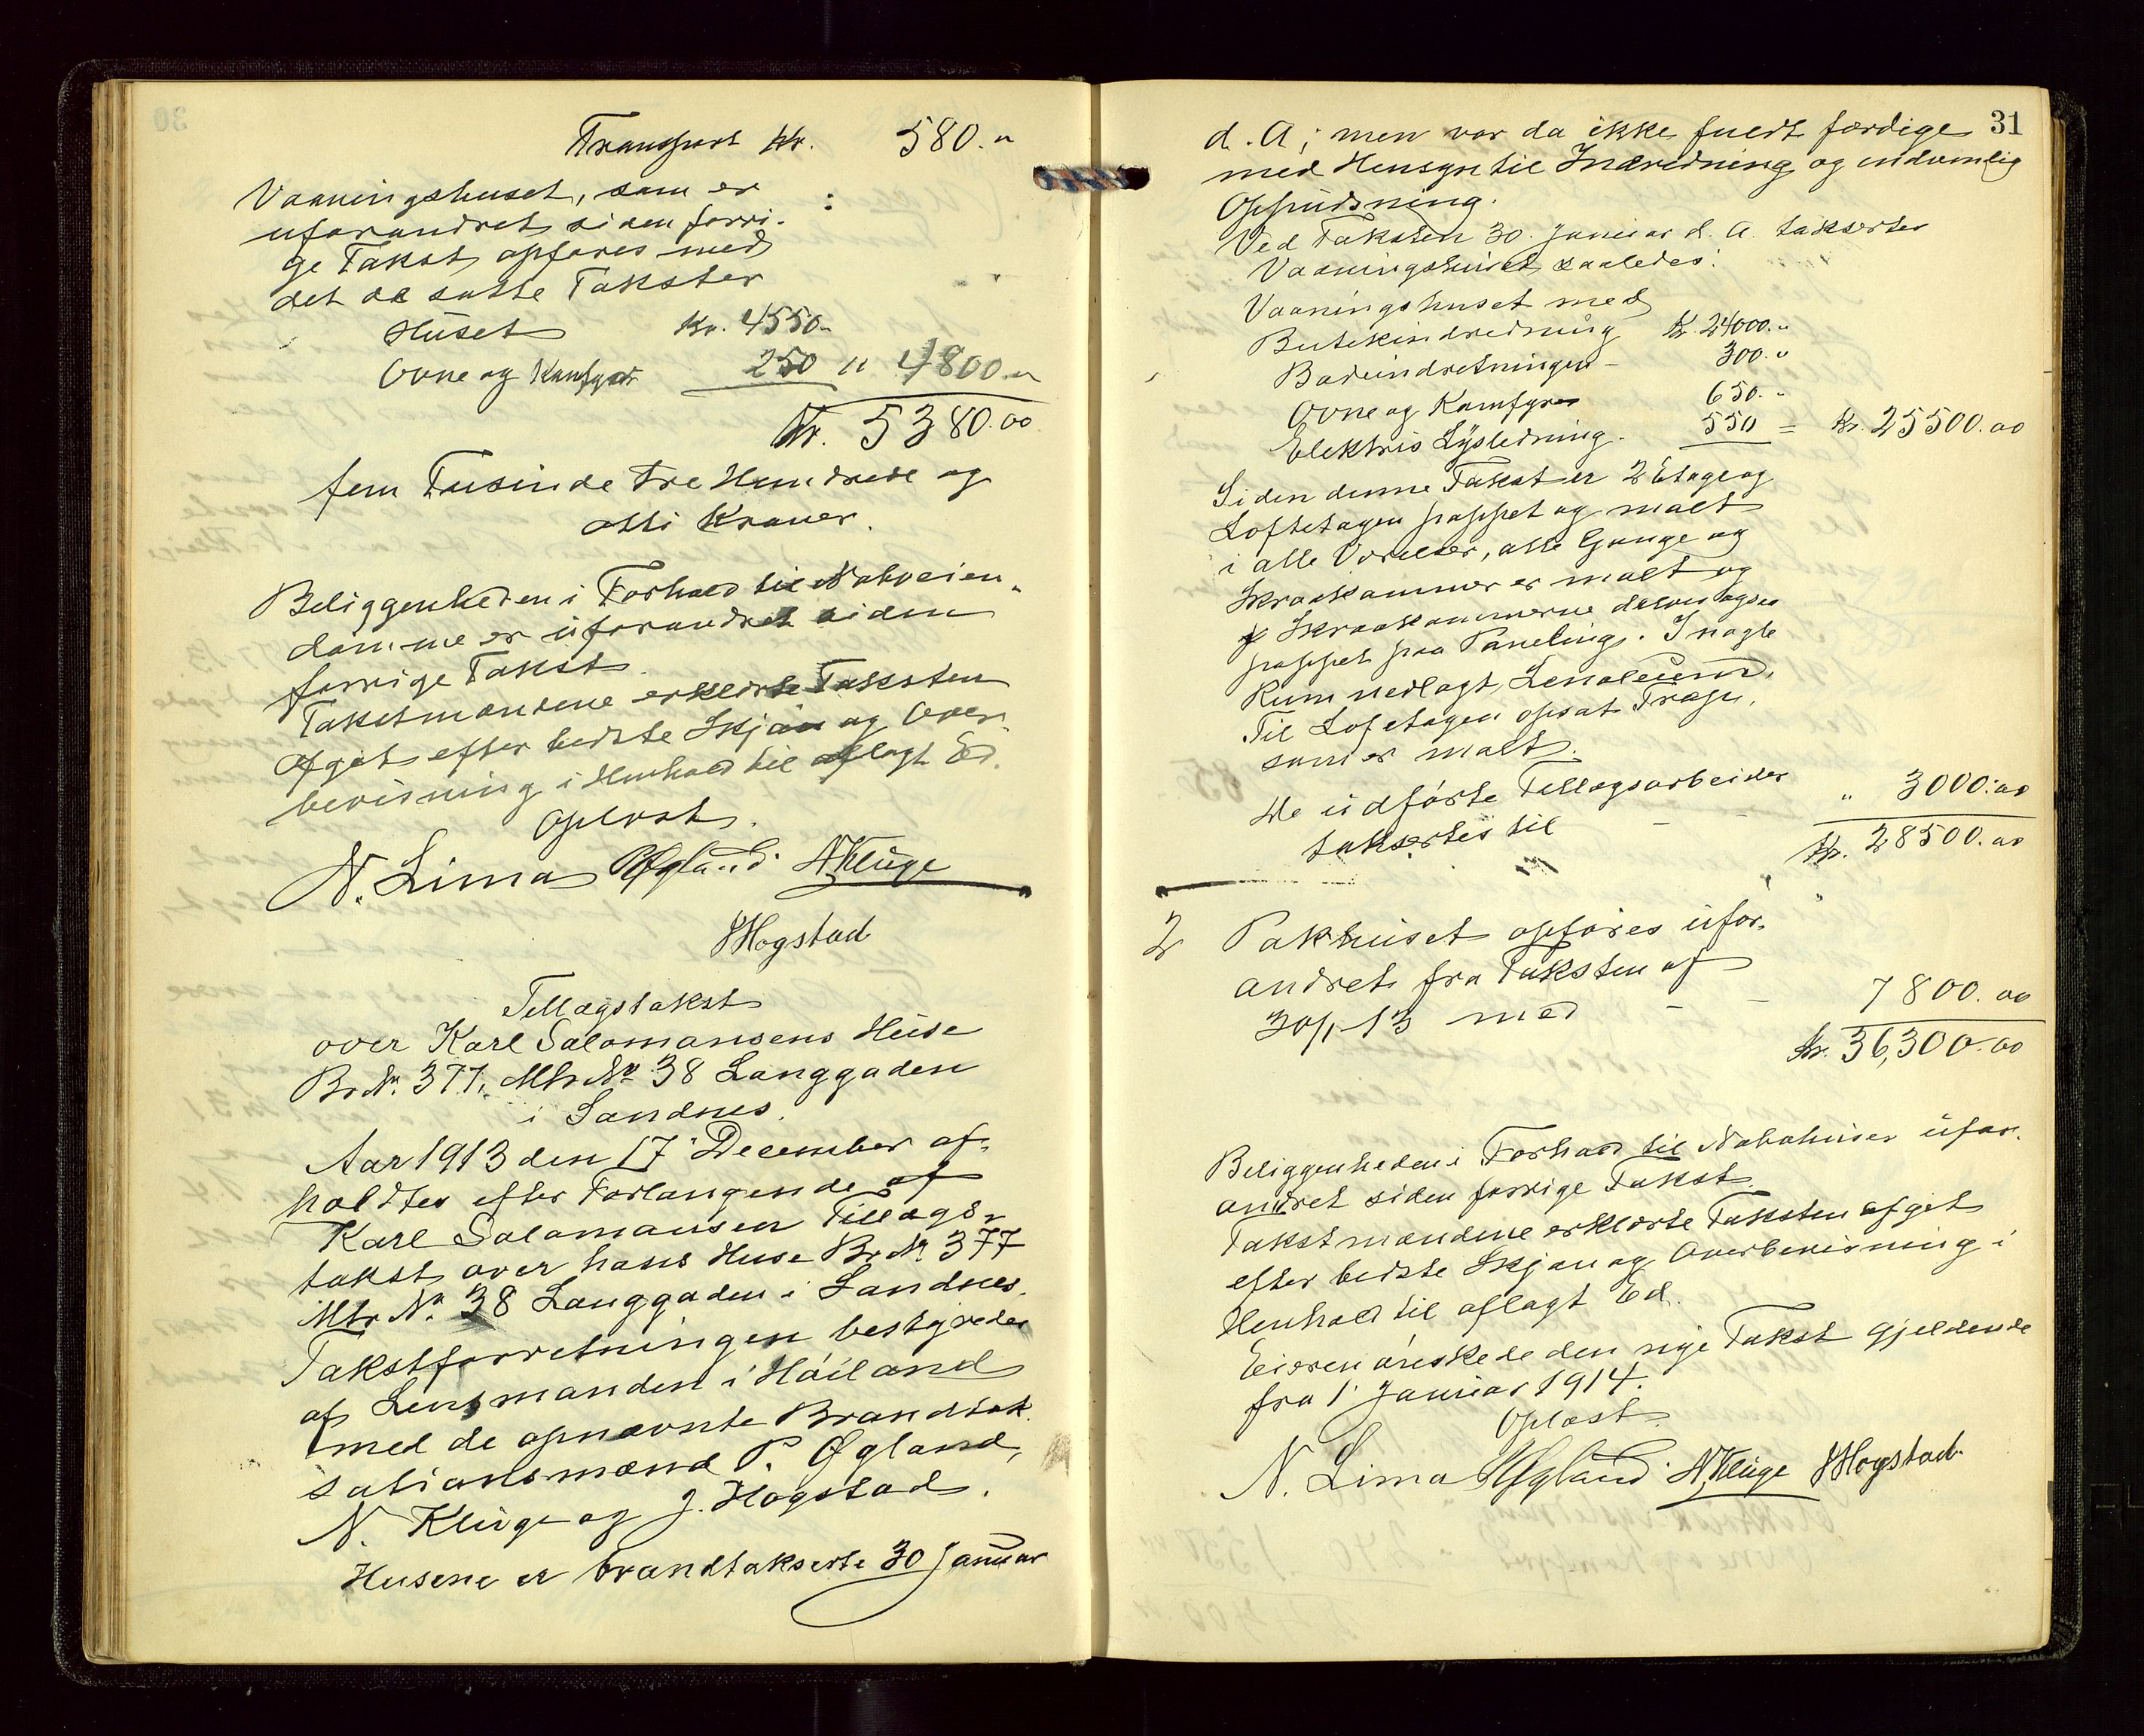 Transport Kr. 580."
Vaaningshuset, som er
uforandret siden forri-
ge Takst opføres med
det da satte Takster
Huset Kr. 4550."
Ovne og Kamfyr 250 " 4800."
Kr. 5380.00
fem Tusinde tre Hundrede og
otti Kroner.
Beliggenheden i Forhold til Naboeien-
domme er uforandret siden
forrige Takst.
Takstmændene erklærte Taksten
afgit efter bedste Skjøn og Over-
bevisning i Henhold til aflagt Ed.
Oplæst.
N. Lima POgland. N Kluge
JHogstad
Tillægstakst
over Karl Salomonsens Huse
Br. Nr. 377, Mtr Nr 38 Langgaden
i Sandnes.
Aar 1913 den 17 December af-
holdtes efter Forlangende af
Karl Salomonsen Tillægs-
takst over hans Huse Br. Nr. 377
Mtr Nr. 38 Langgaden i Sandnes.
Takstforretningen bestyredes
af Lensmanden i Høiland
med de opnævnte Brandtak-
sationsmænd P. Øgland,
N. Kluge og J. Høgstad.
Husene er brandtakserte 30 Januar
31
d. A; men var da ikke fuldt færdige
med Hensyn til Indredning og indvendig
Oppudsning.
Ved Taksten 30. Januar d. A. taksertes
Vaaningshuset saaledes:
Vaaningshuset med
Butikindredning Kr. 24000."
Badeindretningen - 300."
Ovne og Kamfyre 650."
Elektris Lysledning. 550 = Kr. 25500.00
Siden denne Takst er 2 Etage og
Loftetagen pappet og malt
i alle Værelser, alle Gange og
Skraakammer er malt og
Skraakammerne desuden ogsaa
pappet paa Paneling. I nogle
Rum nedlagt Lenoleum.
Til Loftetagen opsat Trapp,
som er malt.
De udførte Tillægsarbeider
takseres til - - " 3000.00
Kr. 28500.00
2 Pakhuset opføres ufor-
andret fra Taksten af
30/1-13 med - - 7800.00
Kr. 36,300.00
Beliggenheden i Forhold til Nabohuser ufor-
andret siden forrige Takst.
Takstmændene erklærte Taksten afgit
efter bedste Skjøn og Overbevisning i
Henhold til aflagt Ed.
Eieren ønskede den nye Takst gjeldende
fra 1 Januar 1914.
Oplæst.
N. Lima POgland. N. Kluge JHogstad